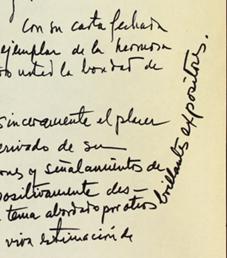 Con su carta fechada
ejemplar de la hermosa
usted la bondad de
sinceramente el placer
erivado de su
ones y señalamientos de
positivamente des-
tema abordado por otros
viva estimación de
brillantes expositores.